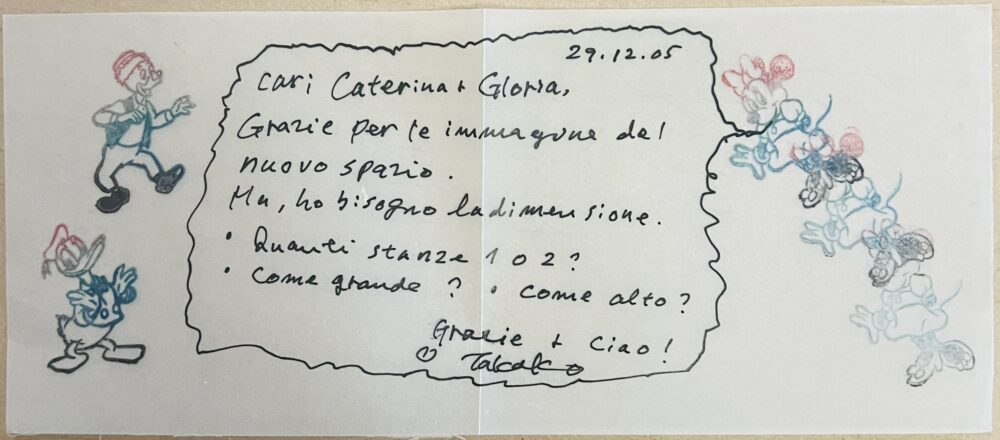 29.12.05
Cari Caterina + Gloria,
Grazie per le immagune del
nuovo spazio.
Ma, ho bisogno la dimensione.
• Quanti stanze 1 o 2?
• Come grande? • Come alto?
Grazie + Ciao!
Takako